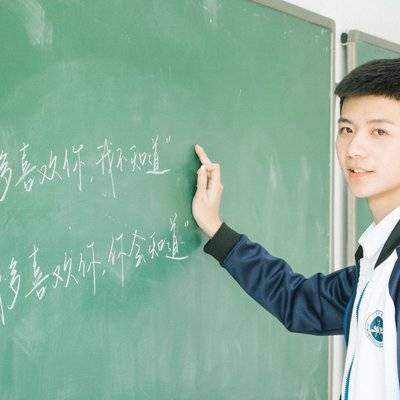 多喜欢你 我不知道"
多喜欢你,你会知道"